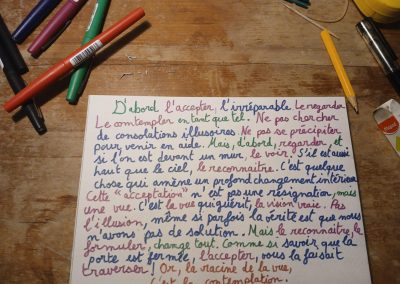 D'abord l'accepter, l'irréparable Le regarder
Le comtempler en tant que tel. Ne pas chercher
de consolations illusoires. Ne pas se précipiter
pour venir en aide. Mais, d'abord, regarder, et
si l'on est devant un mur, le voir. S'il est aussi
haut que le ciel, le reconnaître. C'est quelque
chose qui amène un profond changement intérieur
Cette "acceptation" n'est pas une résignation, mais
une vue. C'est la vue qui guérit, la vision vraie. Pas
l'illusion, même si parfois la vérité est que nous
n'avons pas de solution. Mais le reconnaître, le
formuler, change tout. Comme si savoir que la
porte est fermée, l'accepter, vous la faisait
traverser! Or, la racine de la vue,
c'est la contemplation.